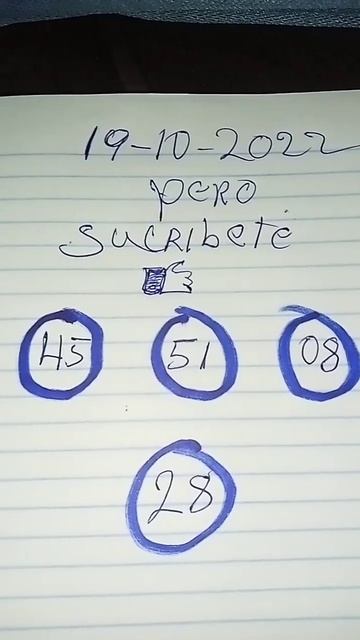 19-10-2022
pero
sucribete
45 51 08
28